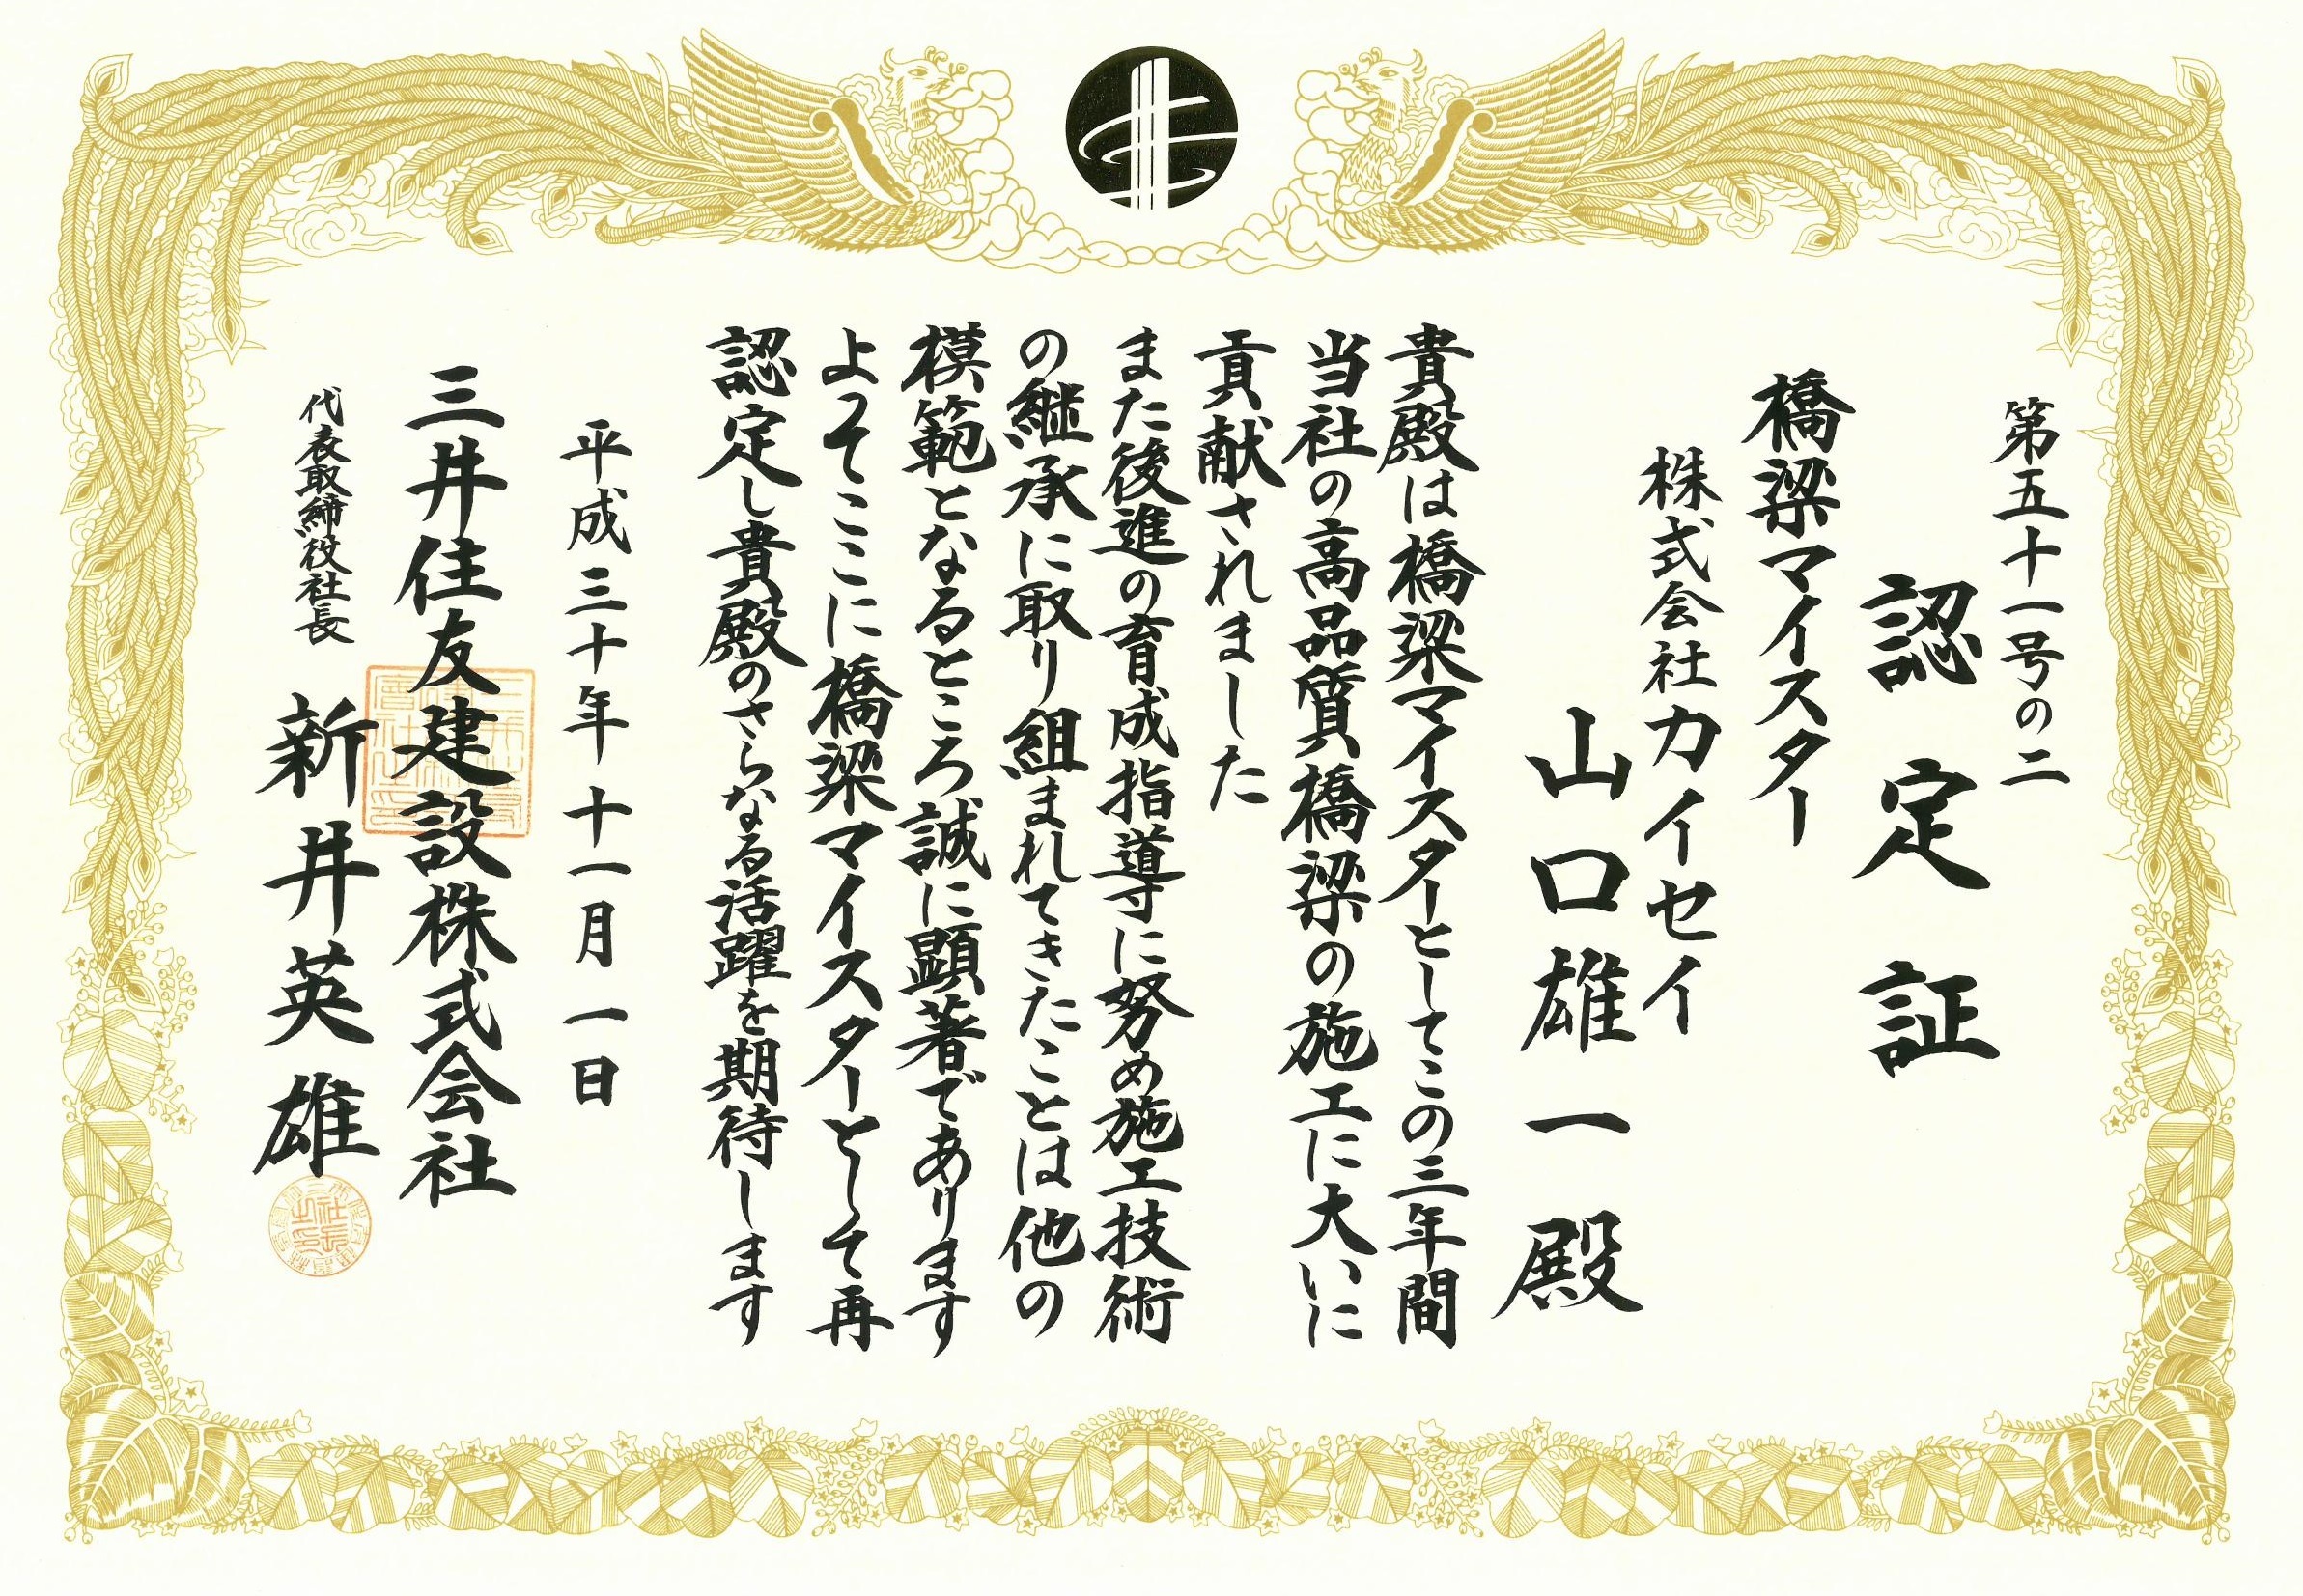 第五十一号の二
認定証
橋梁マイスター
株式会社カイセイ
山口雄一殿
貴殿は橋梁マイスターとしてこの三年間
当社の高品質橋梁の施工に大いに
貢献されました
また後進の育成指導に努め施工技術
の継承に取り組まれてきたことは他の
模範となるところ誠に顕著であります
よってここに橋梁マイスターとして再
認定し貴殿のさらなる活躍を期待します
平成三十年十一月一日
三井住友建設株式会社
代表取締役社長 新井英雄